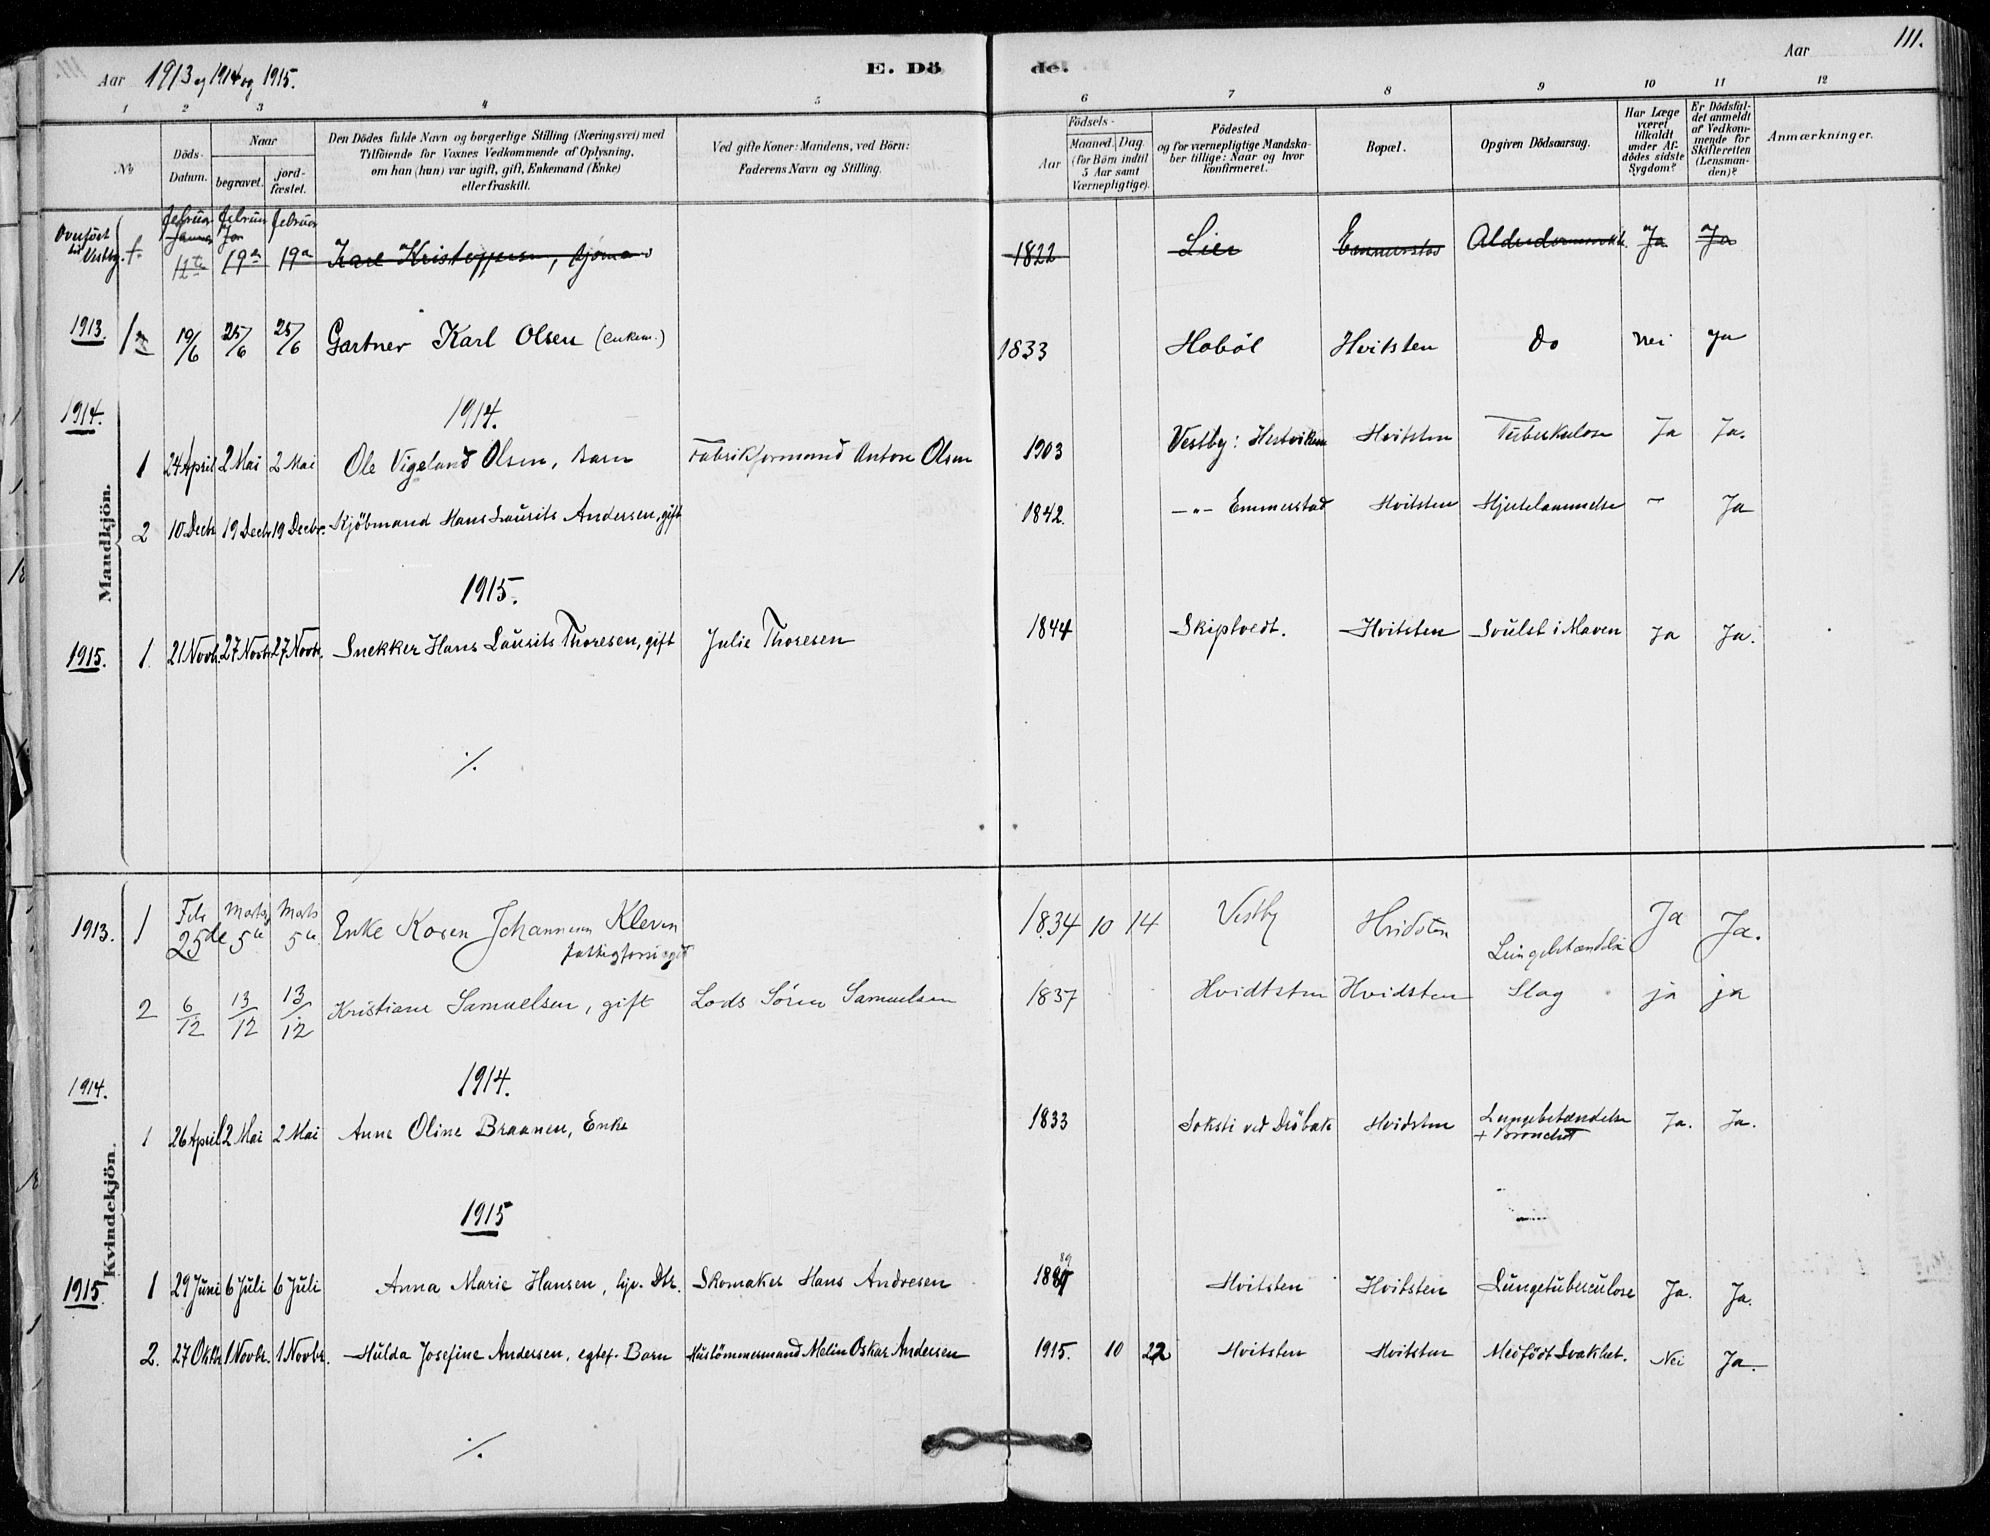 111.
Aar 1913 og 1914 og 1915. E. Dö de. Aar
1 2 3 4 5 6 7 8 9 10 11 12
No
Döds-Datum.
Naar
begravet. jordfæstet.
Den Dödes fulde Navn og borgerlige Stilling (Næringsvei) med
Tilföiende for Voxnes Vedkommende af Oplysning,
om han (hun) var ugift, gift, Enkemand (Enke)
eller fraskilt.
Ved gifte Koner: Mandens, ved Börn:
Faderens Navn og Stilling.
Födsels-
Aar Maaned. Dag.
(for Börn indtil
5 Aar samt
Værnepligtige).
Födested
og for værnepligtige Mandska-
ber tillige: Naar og hvor
konfirmeret.
Bopæl.
Opgiven Dödsaarsag.
Har Læge
været
tilkaldt
under Af-
dödes sidste
Sygdom?
Er Dödsfal-
det anmeldt
af Vedkom-
mende for
Skifteretten
(Lensman-
den)?
Anmærkninger.
Mandkjön.
Overfört til Vestby. Februar Januar 11te Februar Jan 19de Februar 19de Karl Kristoffersen, 1822 Lier Emmerstad Ja Ja
1913. 1 19/6 25/6 25/6 Gartner Karl Olsen (enkem.) 1833 Hobøl Hvitsten Do nei ja
1914. 1914.
1 24 April 2 Mai 2 Mai Ole Vigeland Olsen, Barn Fabrikformand Anton Olsen 1903 Vestby: Hestviken Hvitsten Tuberkulose Ja Ja.
2 10 Decbr 19 Decbr 19 Decbr. Kjöbmand Hans Laurits Andersen, gift 1842. -"- Emmerstad Hvitsten Hjertelammelse - Ja
1915.
1915. 1. 21 Novbr. 27 Novbr. 27 Novbr. Snekker Hans Laurits Thoresen, gift Julie Thoresen 1844 Skiptvedt. Hvitsten Svulst i Maven Ja Ja.
./.
Kvindekjön.
1913. 1 Feb 25de Marts 5te Marts 5te Enke Karen Johannesen Kleven 1834 10 14 Vestby Hvidsten Lungebetændelse Ja Ja.
fattigforsørget
2 6/12 13/12 13/12 Kristiane Samuelsen, gift Lods Sören Samuelsen 1837 Hvidtsten Hvidsten Slag ja ja
1914. 1914.
1 26 April 2 Mai 2 Mai Anne Oline Braanen, Enke 1833 ved Dröbak Hvidsten Lungebetændelse Ja. Ja.
+ Bronchit
1915
1915. 1 29 Juni 6 Juli 6 Juli Anna Marie Hansen, hjv. Dtr. Skomaker Hans Andresen 1889 Hvitsten Hvitsten Lungetuberculose Ja. Ja.
2. 27 Oktbr 1 Novbr. 1 Novbr. Hulda Josefine Andersen, egtef. Barn Hustömmermand Melin Oskar Andersen 1915. 10 22 Hvitsten Hvitsten Medfödt Svakhet. Nei Ja.
./.